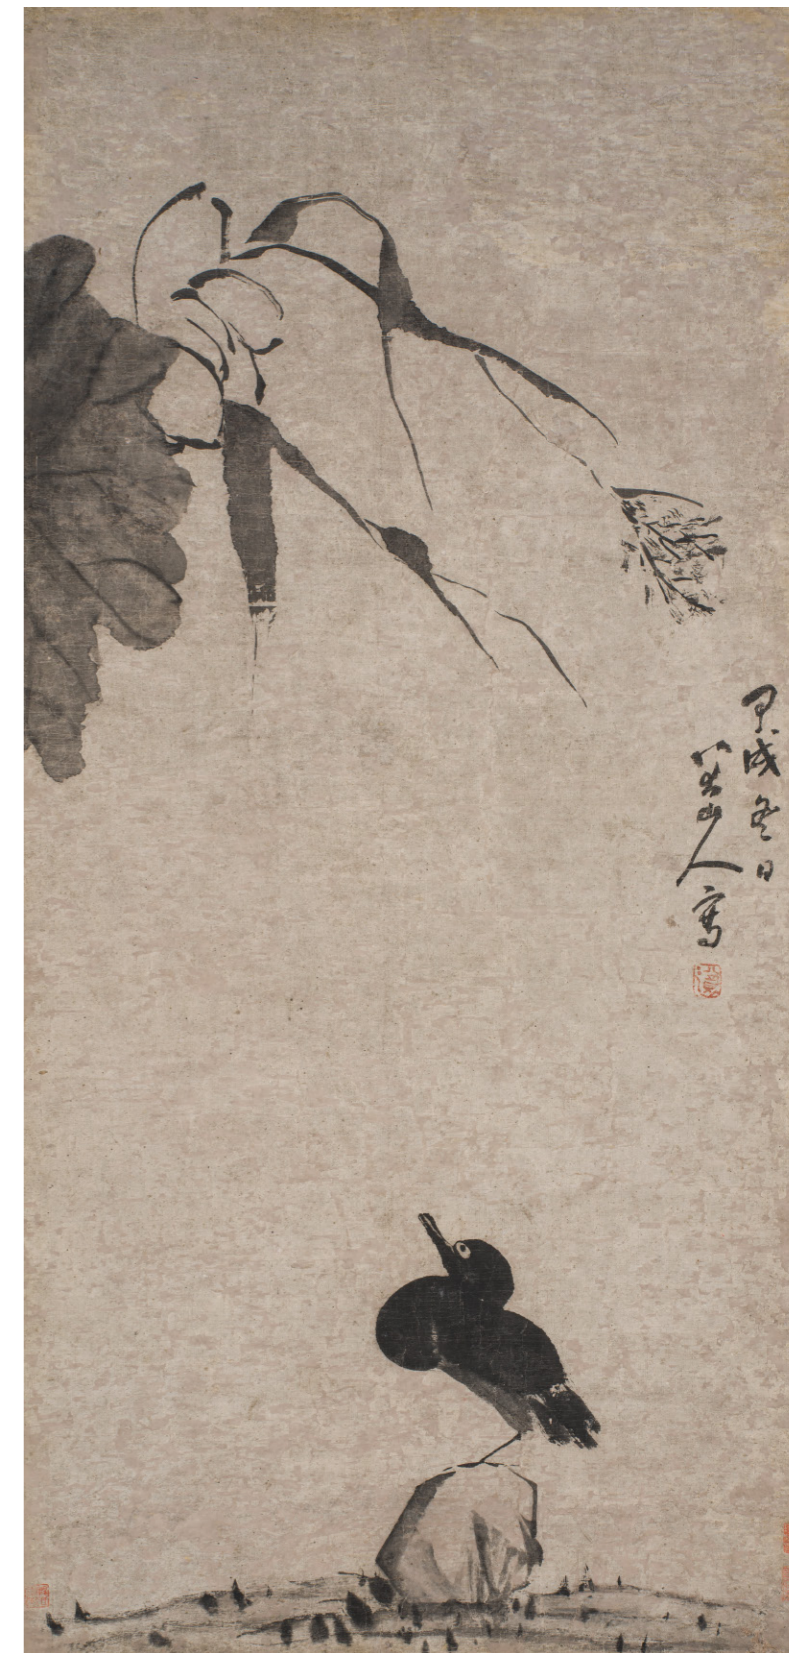 甲戌冬日
八大山人寫